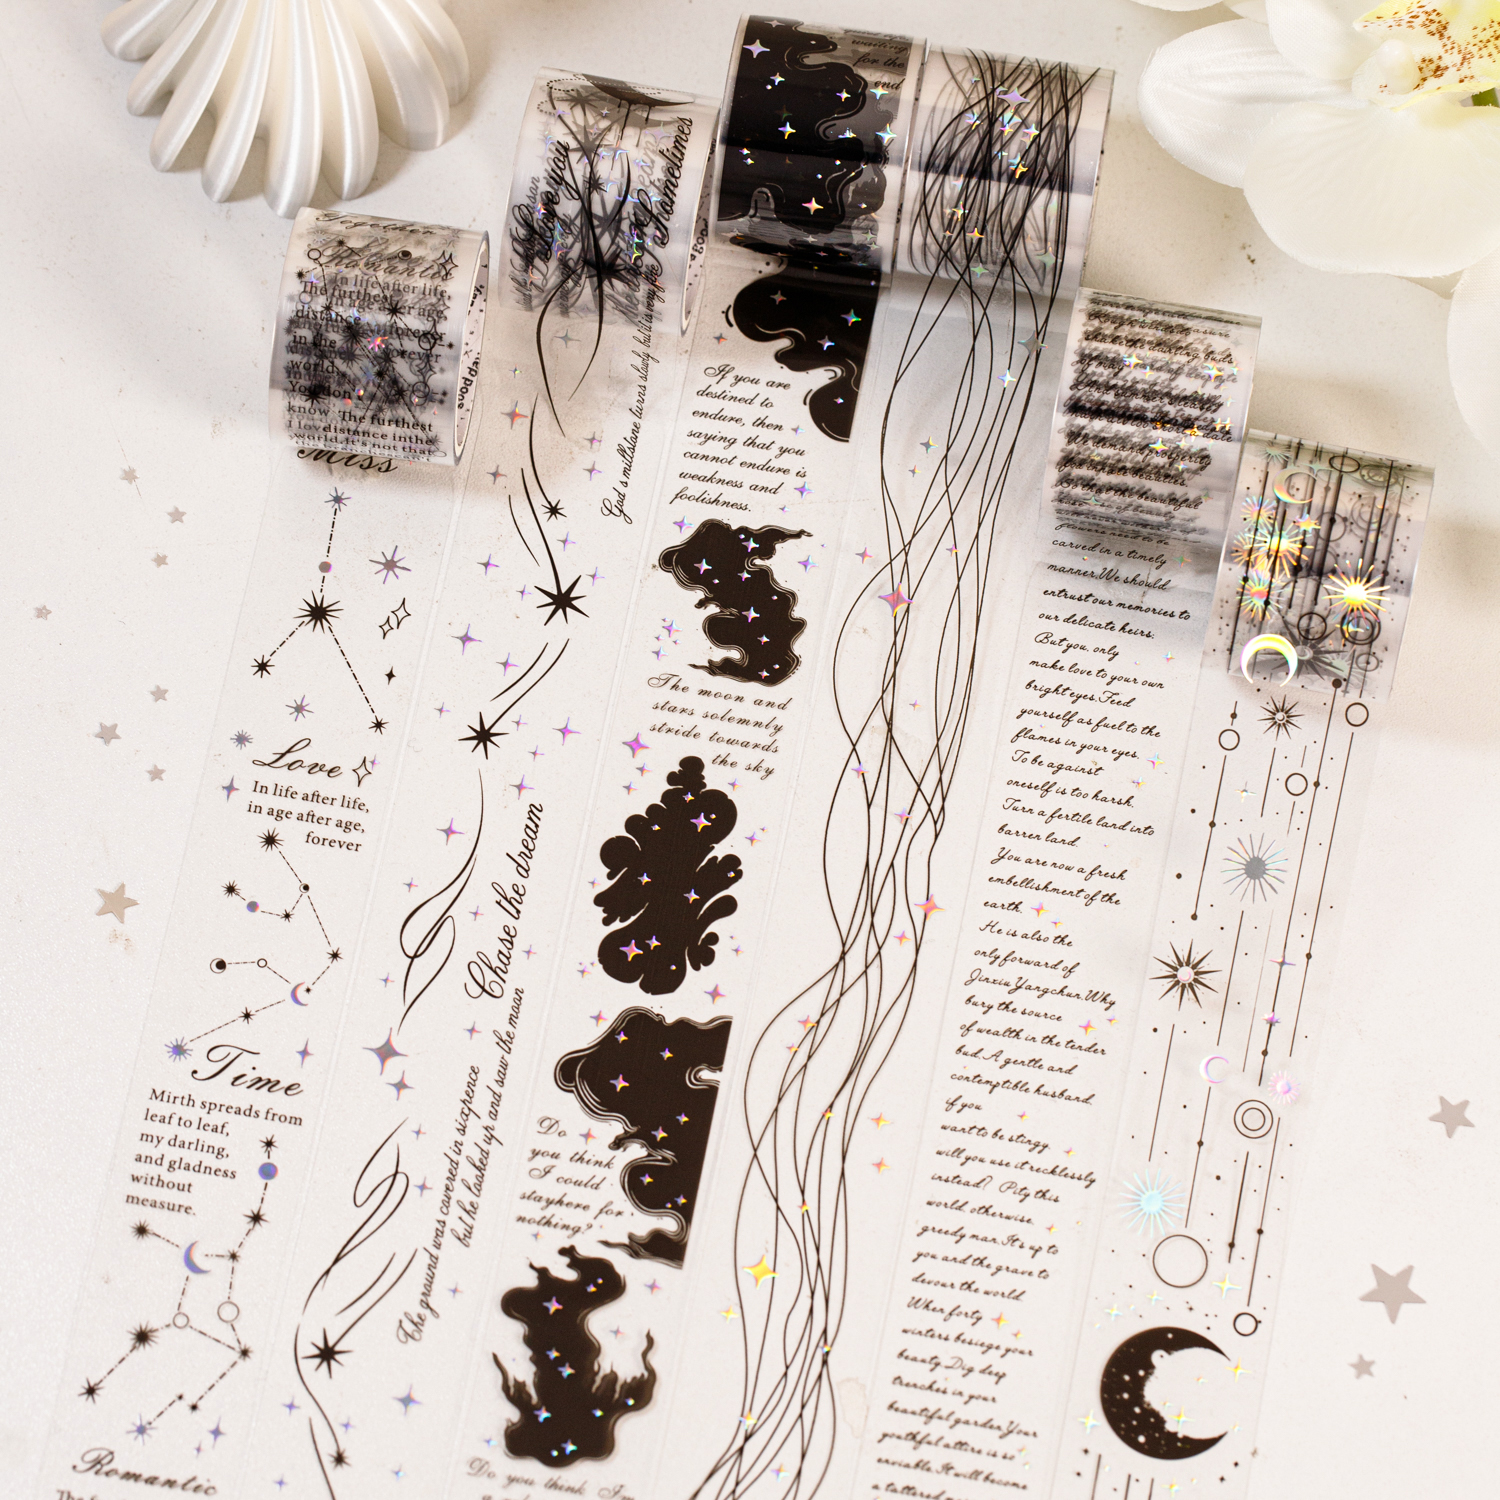 Together
Romantic
in life after life,
The furthest
distance
in the
world.
You don
know The furthest
I love distance in the
world, It's not that
Miss
Love
In life after life,
in age after age,
forever
Time
Mirth spreads from
leaf to leaf,
my darling,
and gladness
without
measure.
Romantic
Love you
Sometimes
God's millstone turns slowly but it is very fine
Chase the dream
The ground was covered in sixpence
but he looked up and saw the moon
waiting
for the
end
If you are
destined to
endure, then
saying that you
cannot endure is
weakness and
foolishness.
The moon and
stars solemnly
stride towards
the sky
Do
you think
I could
stay here for
nothing?
Do you think I'm
carved in a timely
manner. We should
entrust our memories to
our delicate heirs:
But you, only
make love to your own
bright eyes. Feed
yourself as fuel to the
flames in your eyes.
To be against
oneself is too harsh.
Turn a fertile land into
barren land.
You are now a fresh
embellishment of the
earth.
He is also the
only forward of
Jinxiu Yangchun. Why
bury the source
of wealth in the tender
bud. A gentle and
contemptible husband.
if you
want to be stingy.
will you use it recklessly
instead? Pity this
world, otherwise.
greedy man. It's up to
you and the grave to
devour the world
When forty
winters besiege your
beauty. Dig deep
trenches in your
beautiful garden. Your
youthful attire is so
enviable. It will become
a tattered